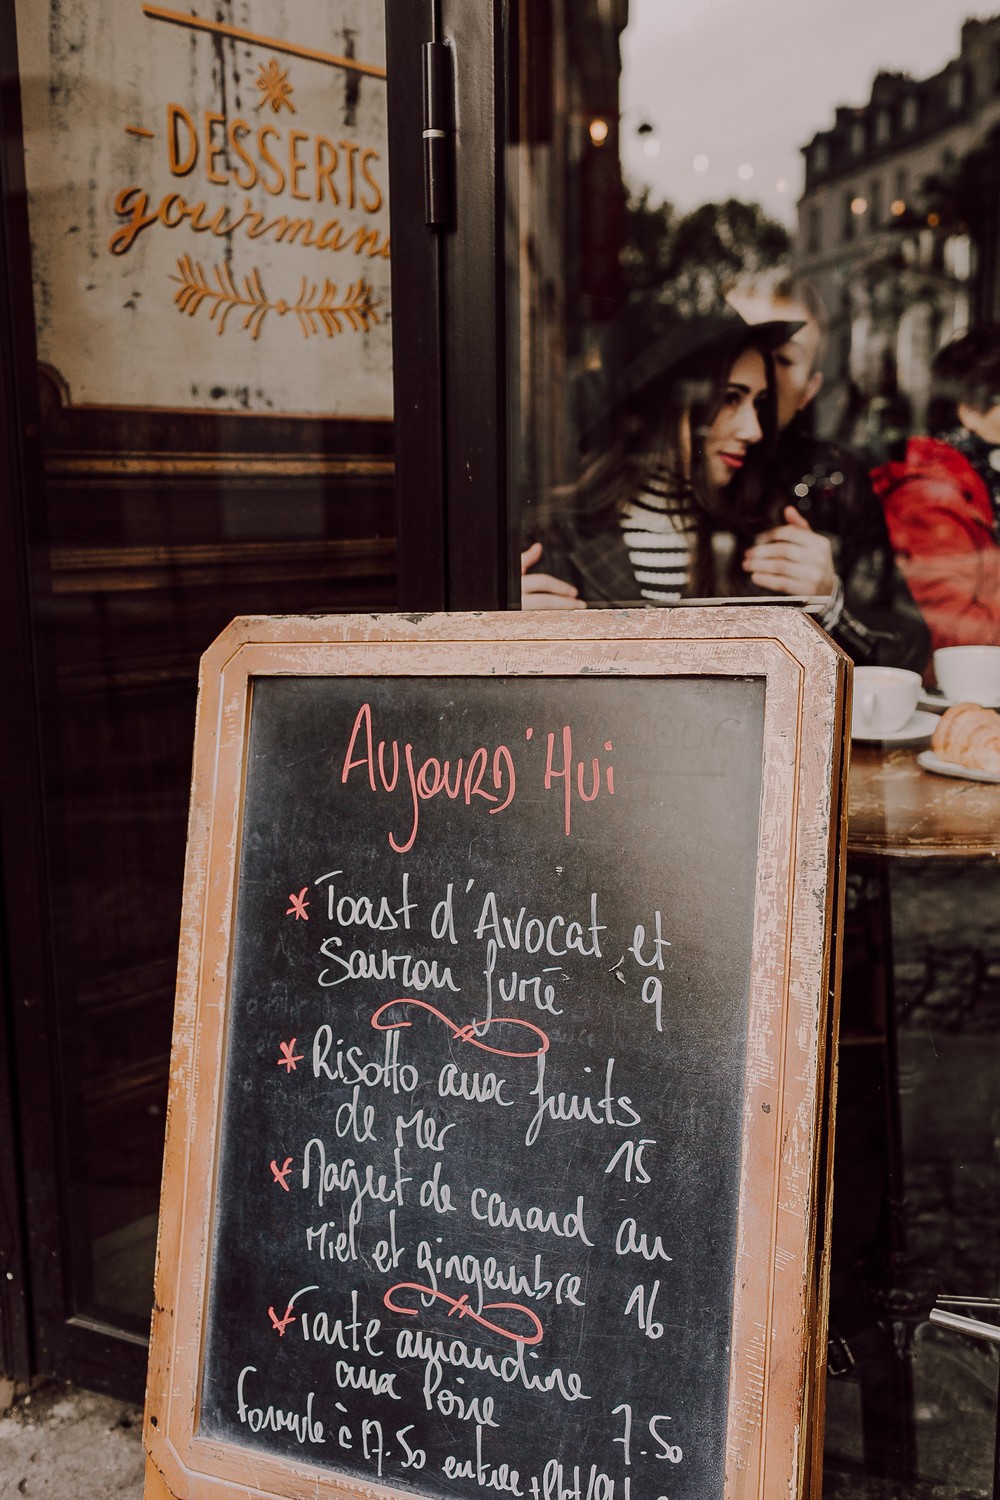 DESSERTS
gourman
Aujourd'Hui
* Toast d'Avocat et
Saumon fumé 9
* Risotto aux fruits
de Mer 15
* Magret de canard au
Miel et gingembre 16
* Tarte amandine
aux Poire 7.50
formule à 17.50 entrée + plat/